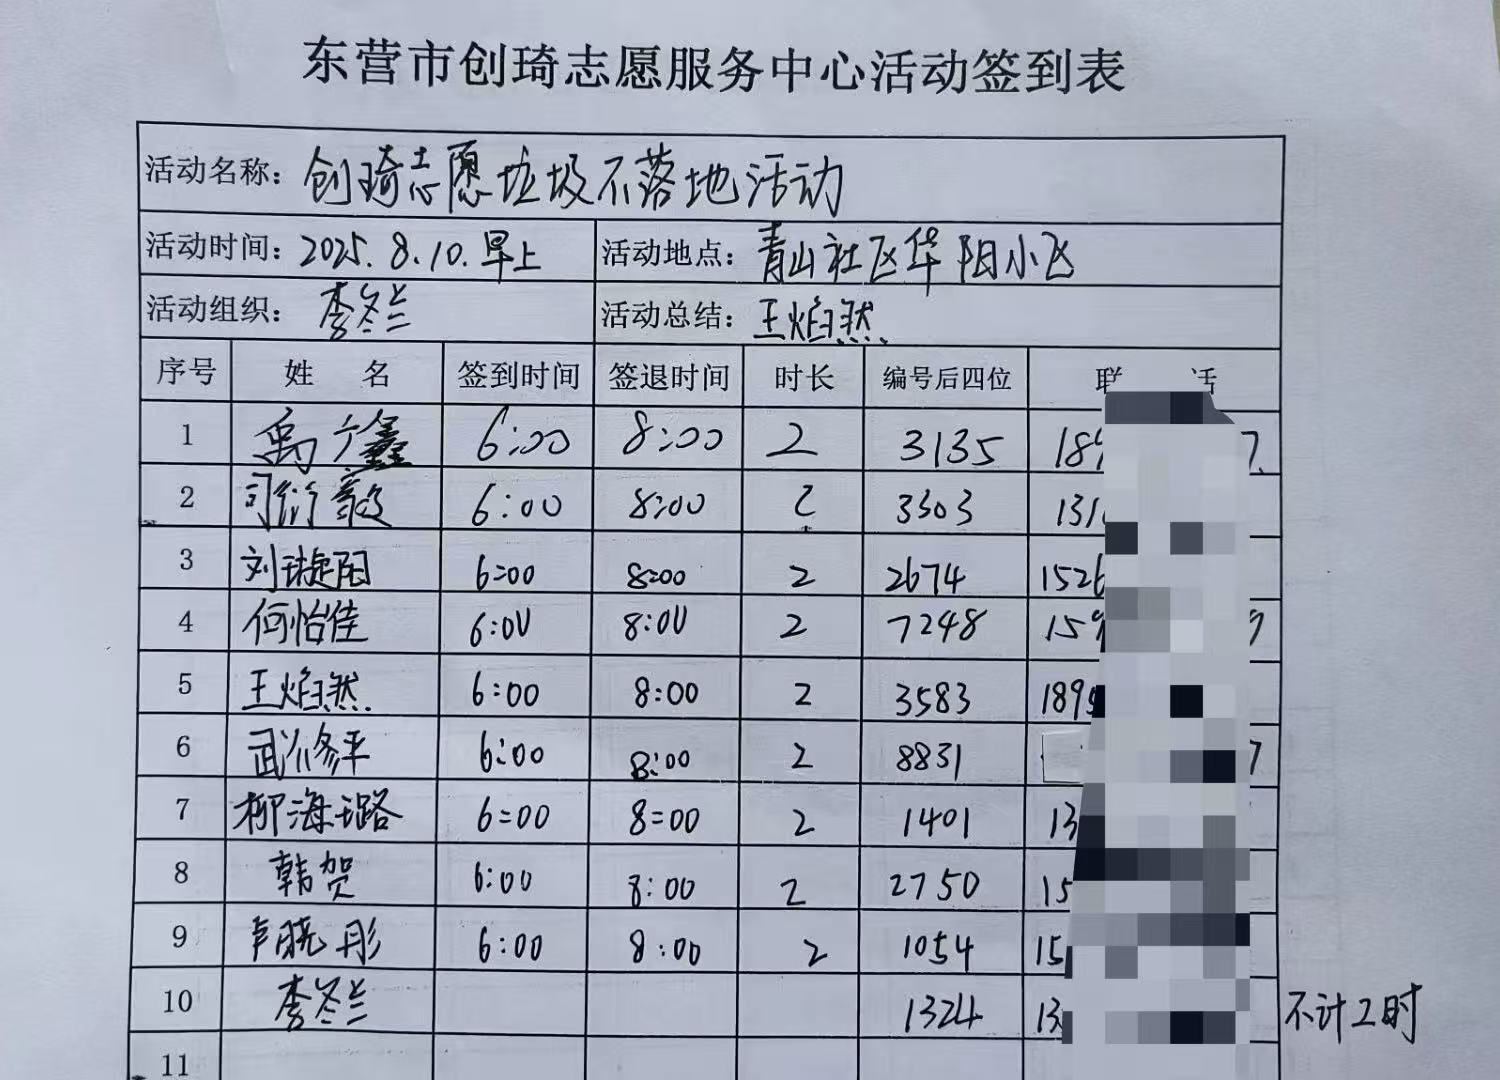 东营市创琦志愿服务中心活动签到表
活动名称：创琦志愿垃圾不落地活动
活动时间：2025.8.10.早上 活动地点：青山社区华阳小区
活动组织：李冬兰 活动总结：王焰然
序号 姓 名 签到时间 签退时间 时长 编号后四位 联 话
1 禹 鑫 6:00 8:00 2 3135 189 7
2 司衍毅 6:00 8:00 2 3303 131
3 刘璇阳 6:00 8:00 2 2674 1526
4 何怡佳 6:00 8:00 2 7248 159 9
5 王焰然 6:00 8:00 2 3583 189
6 武修平 6:00 8:00 2 8831 7
7 柳海璐 6:00 8:00 2 1401 13
8 韩贺 6:00 8:00 2 2750 15
9 芦晓彤 6:00 8:00 2 1054 15
10 李冬兰 1324 13 不计工时
11